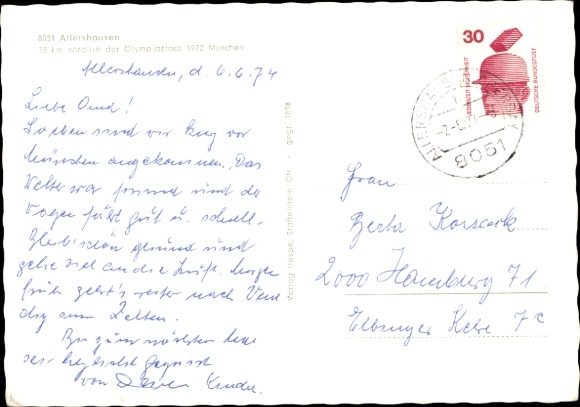 8051 Allershausen
33 km nördlich der Olympiastadt 1972 München
Allershausen, d. 6.6.74
Liebe Omi!
Soeben sind wir kurz vor
München angekommen. Das
Wetter war prima und der
Wagen fährt gut u. schnell.
Bleib schön gesund und
gehe viel an die Luft. Morgen
früh geht's weiter nach Vene
dig zum Zelten.
Bis zum nächsten
sei herzlichst gegrüsst
von Deinen Kinder.
Verlag Haspe, Staffelstein Ofr. · gegr. 1898
30
DEUTSCHE BUNDESPOST
8051
Frau
Berta
2000 Hamburg 71
Elbinger Kehre 7c